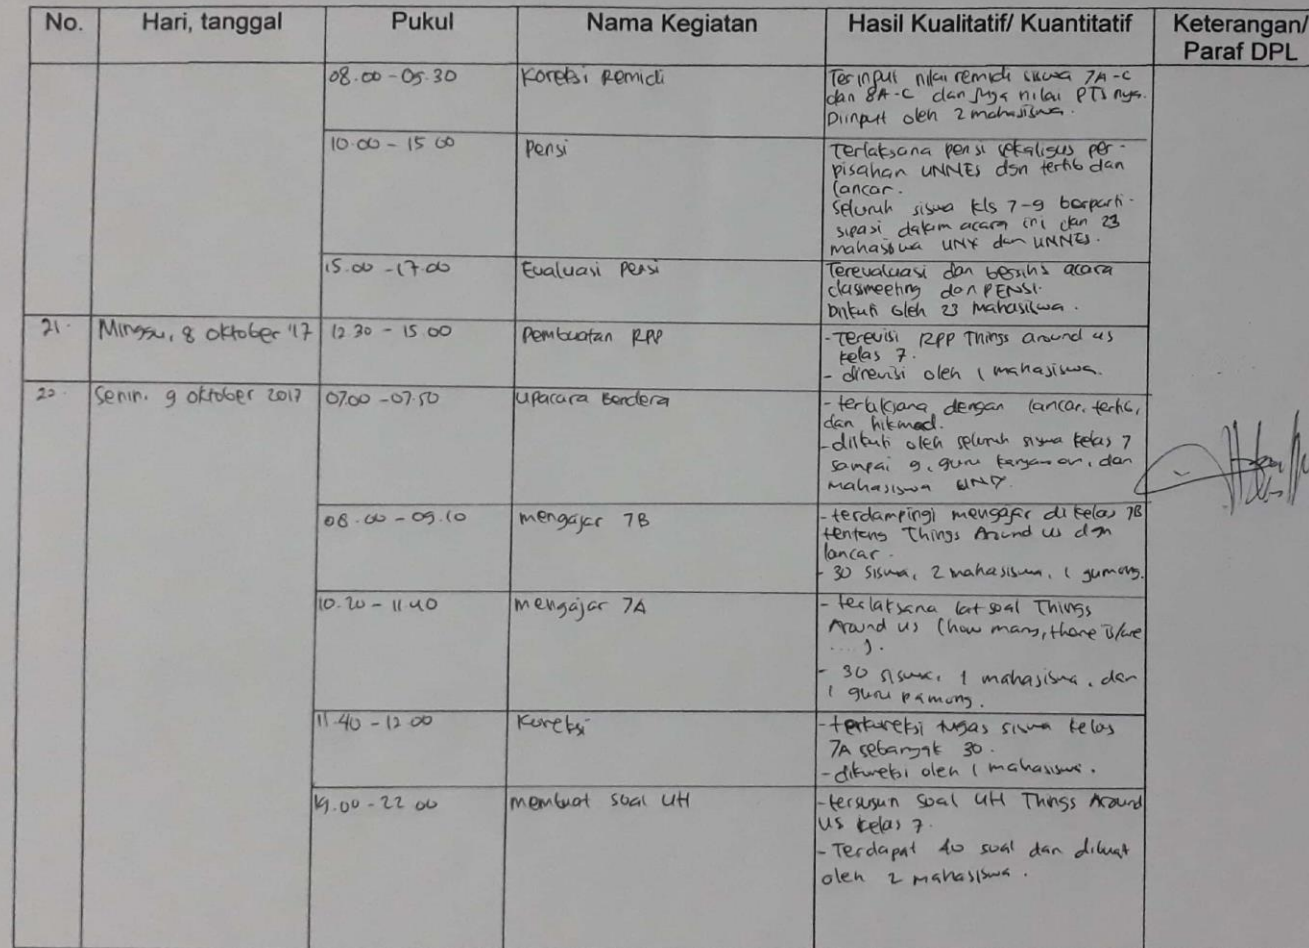 No. Hari, tanggal Pukul Nama Kegiatan Hasil Kualitatif/ Kuantitatif Keterangan/
Paraf DPL
08.00 - 09.30 Koreksi Remidi Terinput nilai remidi siswa 7A-C
dan 8A-C dan juga nilai PTS nya.
Diinput oleh 2 mahasiswa.
10.00 - 15 00 Pensi Terlaksana pensi sekaligus per-
pisahan UNNES dgn tertib dan
lancar.
Seluruh siswa kls 7-9 berparti-
sipasi dalam acara ini dan 23
mahasiswa UNY dan UNNES.
15.00 - 17.00 Evaluasi Pensi Terevaluasi dan acara
clasmeeting dan PENSI.
Diikuti oleh 23 mahasiswa.
21. Minggu, 8 Oktober '17 12 30 - 15 00 Pembuatan RPP - Terevisi RPP Things around us
kelas 7.
- direvisi oleh 1 mahasiswa.
Senin, 9 Oktober 2017 07.00 - 07.50 Upacara Bendera - terlaksana dengan lancar, tertib,
dan hikmad.
- diikuti oleh seluruh siswa kelas 7
sampai 9, guru karyawan, dan
mahasiswa UNY.
08.00 - 09.10 mengajar 7B - terdampingi mengajar di kelas 7B
tentang Things Around us dgn
lancar.
- 30 siswa, 2 mahasiswa, 1 gumong.
10.20 - 11 40 mengajar 7A - terlaksana lat soal Things
Around us (how many, there is/are
....).
- 30 siswa, 1 mahasiswa, dan
1 guru pamong.
11.40 - 12 00 Koreksi - terkoreksi tugas siswa kelas
7A sebanyak 30.
- dikoreksi oleh 1 mahasiswa.
19.00 - 22 00 membuat soal UH - tersusun soal UH Things Around
us kelas 7.
- Terdapat 40 soal dan dibuat
oleh 2 mahasiswa.